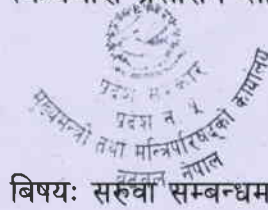 प्रदेश सरकार
प्रदेश नं ५
मुख्यमन्त्री तथा मन्त्रिपरिषद्को कार्यालय
बुटवल, नेपाल
बिषयः सरुवा सम्बन्धम